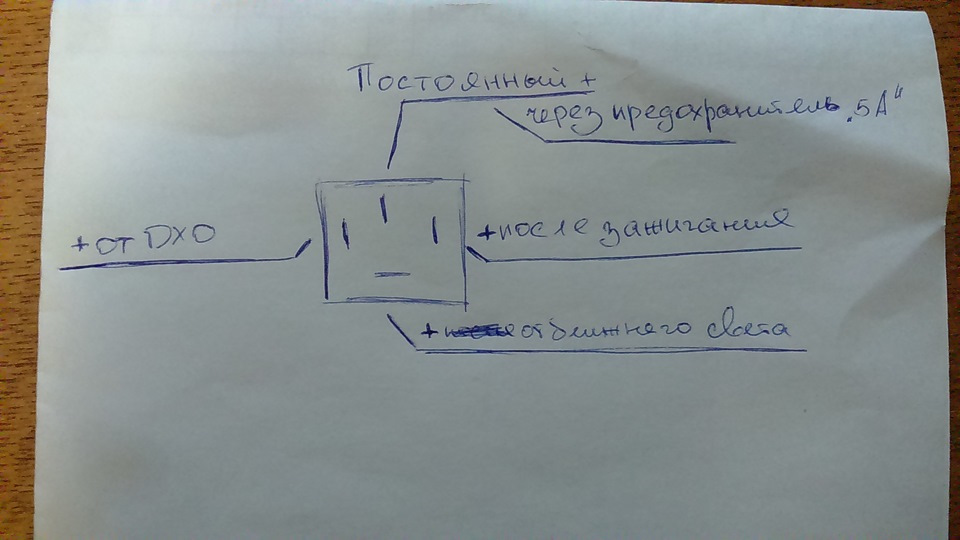 Постоянный +
через предохранитель „5А“
+ от ДХО
+ после зажигания
+ от ближнего света